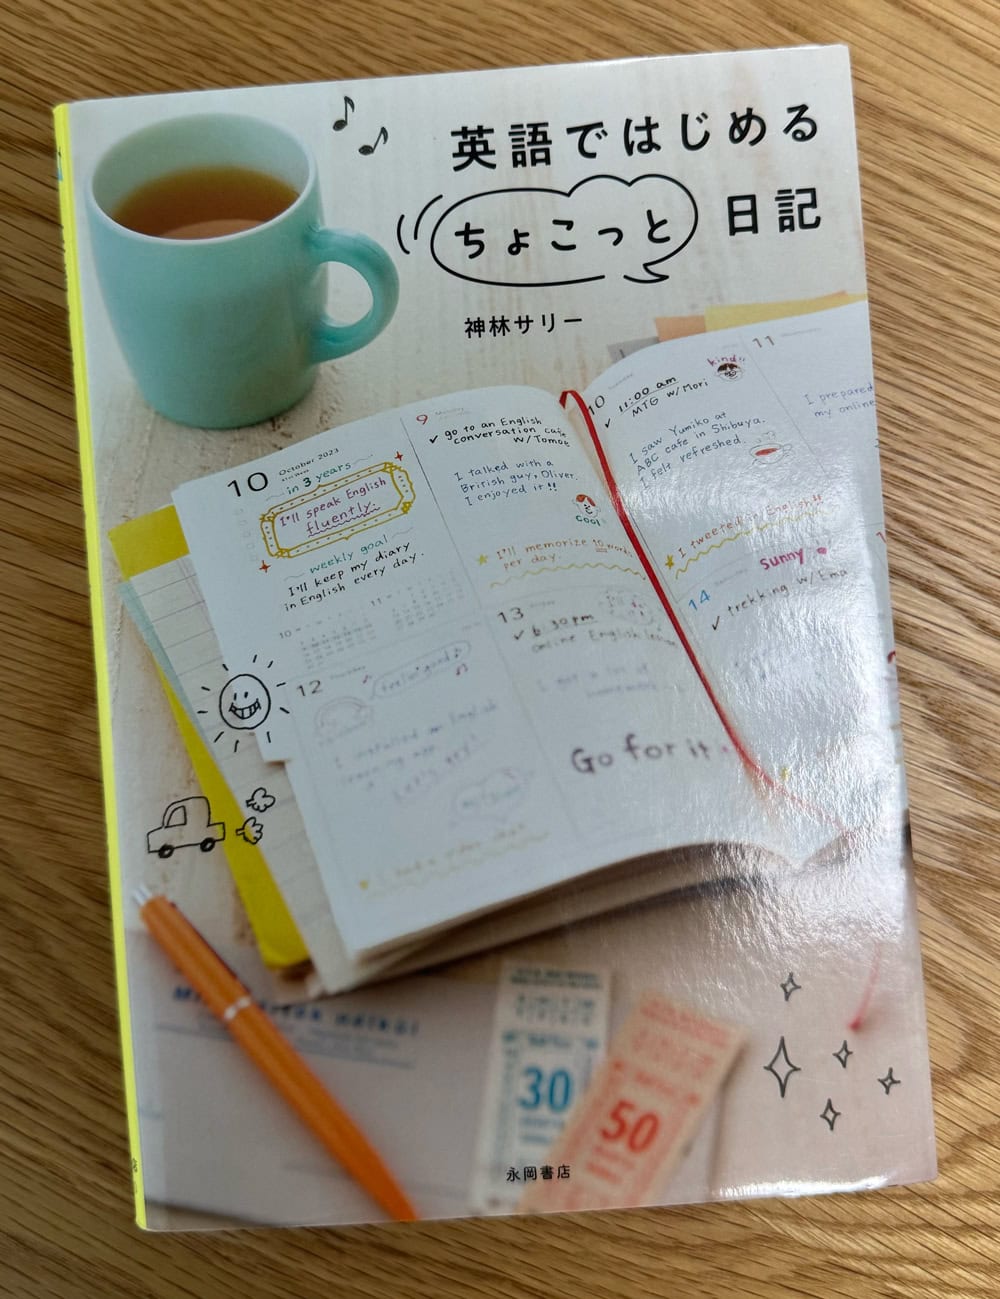 英語ではじめる
ちょこっと
日記
神林サリー
10
October 2023
in 3 years
I'll speak English
fluently.
weekly goal
I'll keep my diary
in English every day.
10
11
9
Monday
✓ go to an English
conversation cafe
w/Tomoe
I talked with a
British guy, Oliver.
I enjoyed it!!
COOL
★ I'll memorize 10 words
per day.
12
Thursday
feelin' good♪
I installed an English
learning app
13
✓ 6:30pm
Online English lesson
I got a lot of
Go for it
10
✓ 11:00 am
MTG w/Mori
kind!!
I saw Yumiko at
ABC cafe in Shibuya.
I felt refreshed.
★ I tweeted in English!!
11
I prepared
my online
14
sunny
✓ trekking w/Ema
30
50
永岡書店